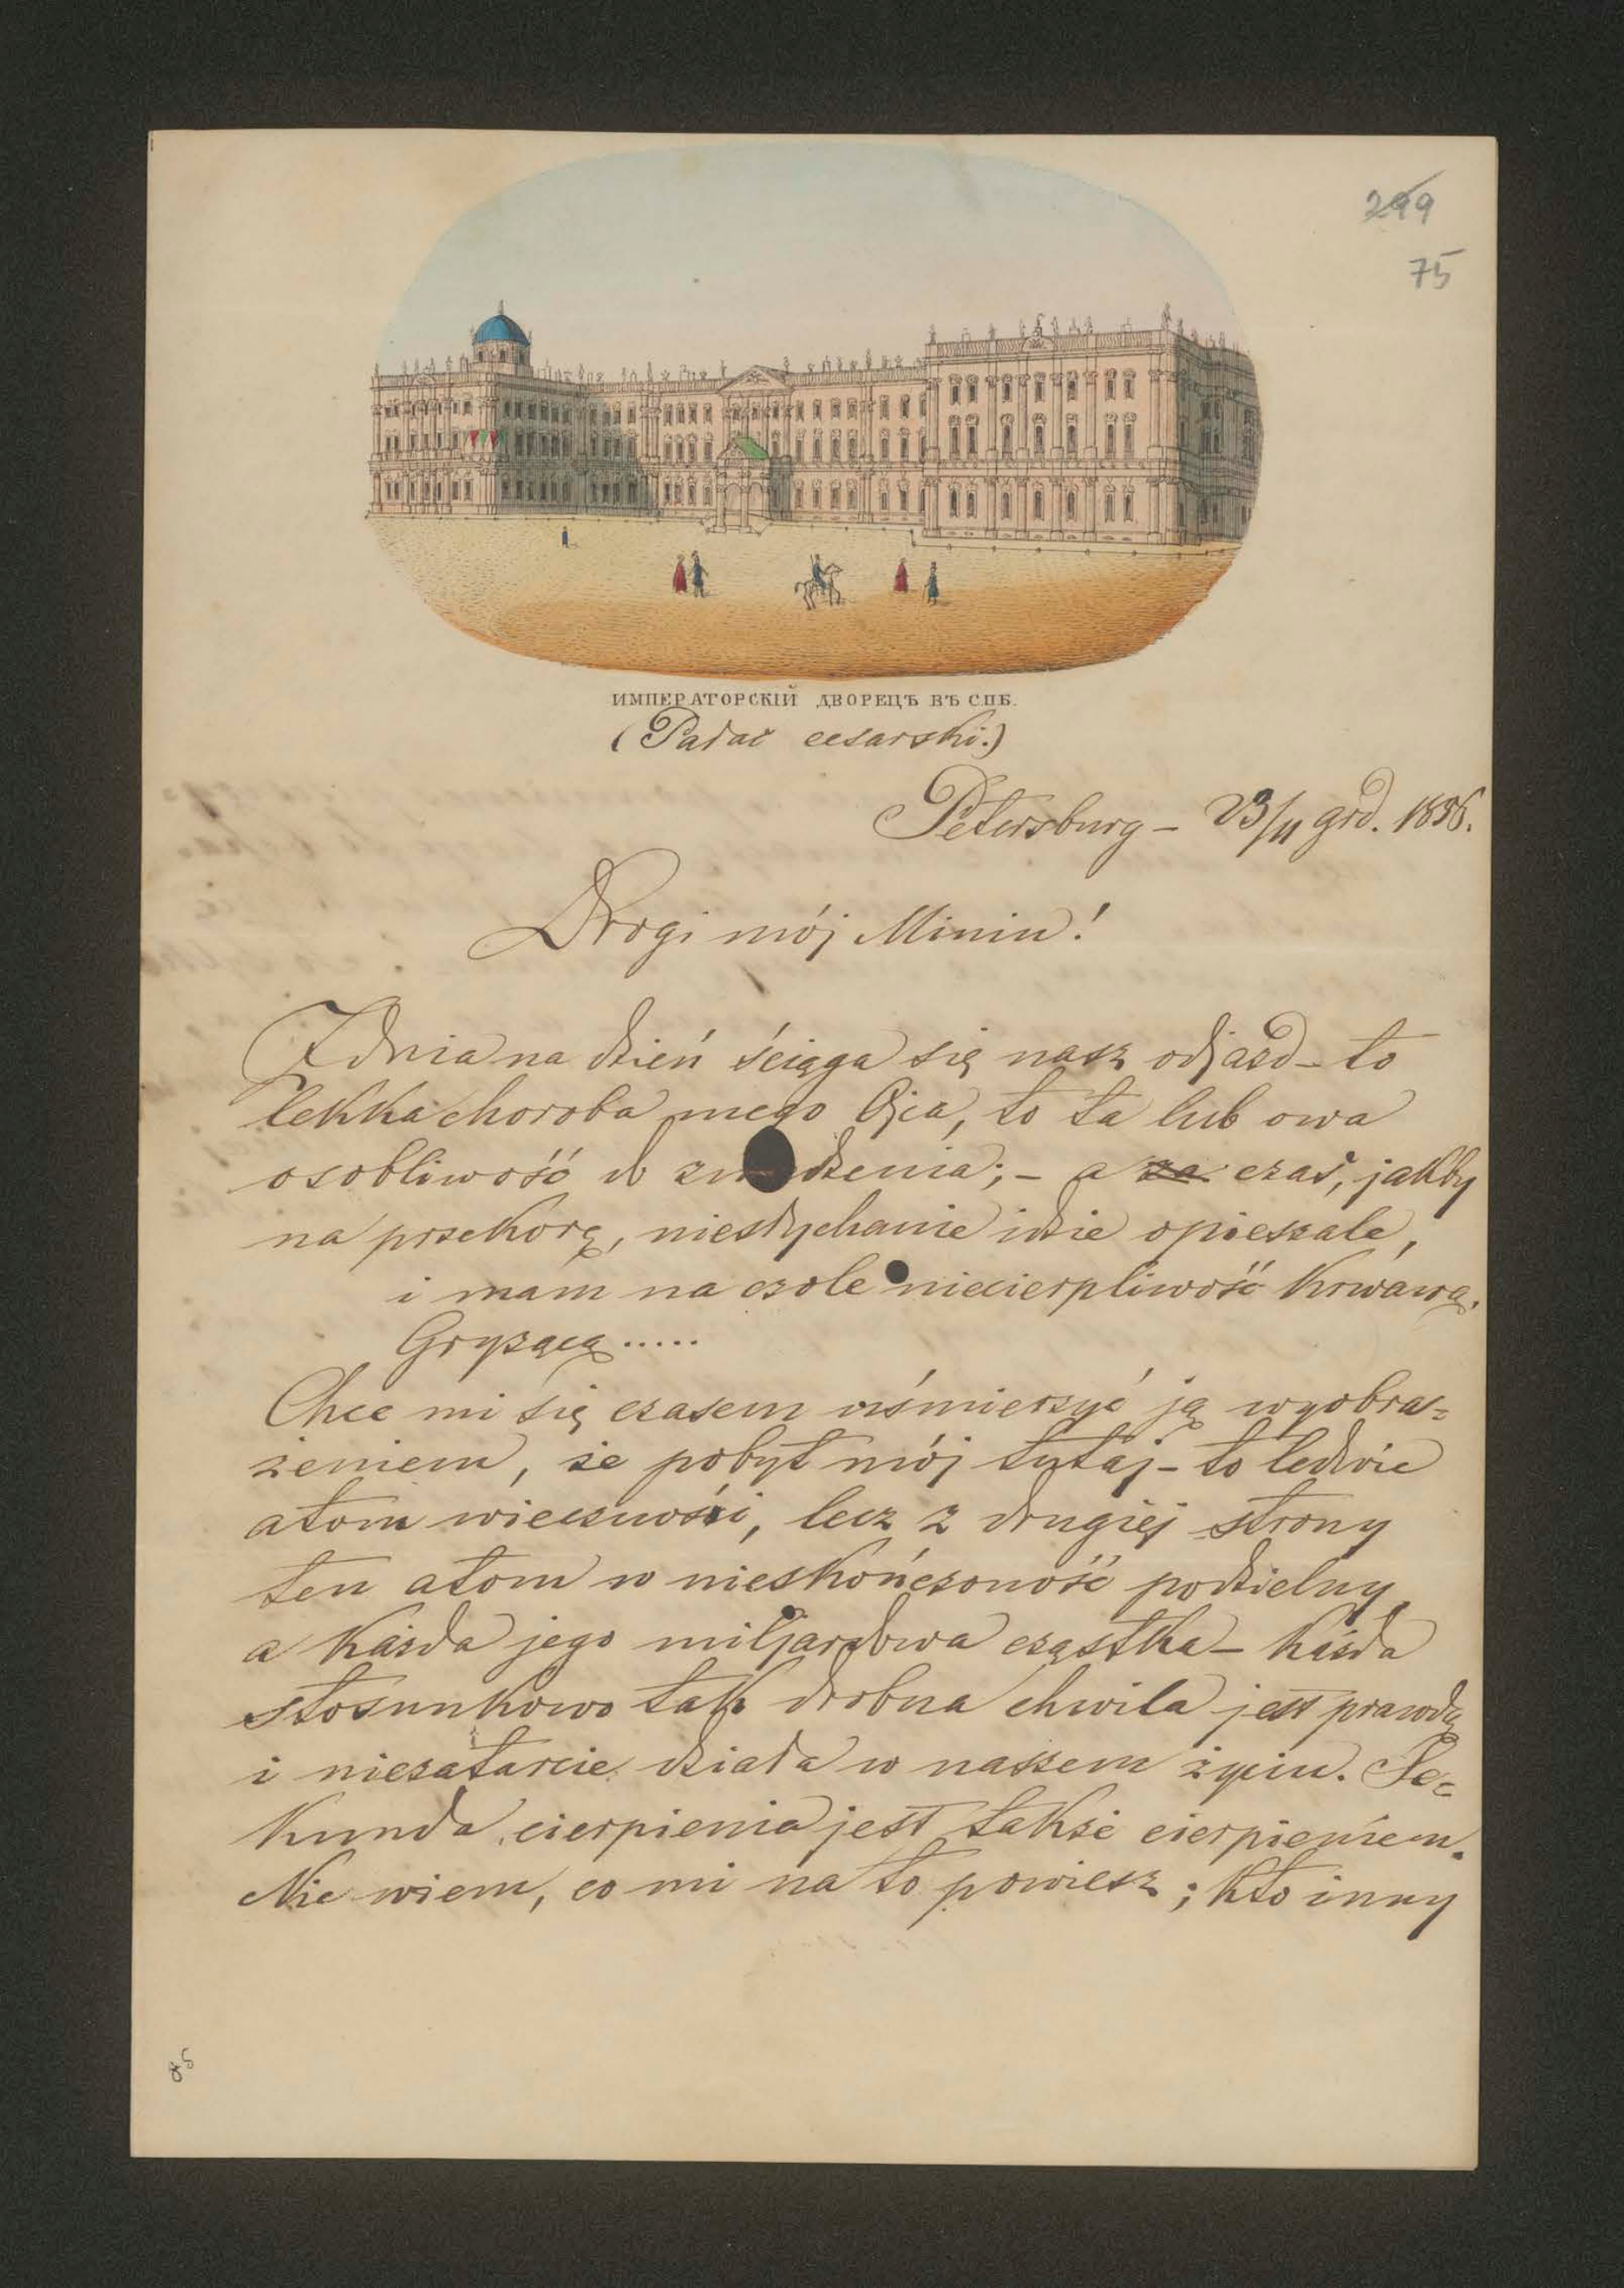 299
75
ИМПЕРАТОРСКІЙ ДВОРЕЦЪ ВЪ СПБ.
(Pałac cesarski.)
Petersburg – 23/11 grd. 1856.
Drogi mój Miniu!
Z dnia na dzień ściąga się nasz odjazd – to
lekka choroba mego Ojca, to ta lub owa
osobliwość do zw dzenia; – a za czas, jakby
na przekorę, niesłychanie idzie opieszale,
i mam na czole niecierpliwość krwawą.
Gryzącą.....
Chce mi się czasem uśmierzyć ją wyobra=
żeniem, że pobyt mój tutaj – to ledwie
atom wieczności, lecz z drugiej strony
ten atom w nieskończoność podzielny,
a każda jego miljardowa cząstka – każda
stosunkowo tak drobna chwila jest prawdą
i niezatarcie działa w naszem życiu. Se=
kunda cierpienia jest także cierpieniem.
Nie wiem, co mi na to powiesz; kto inny
85